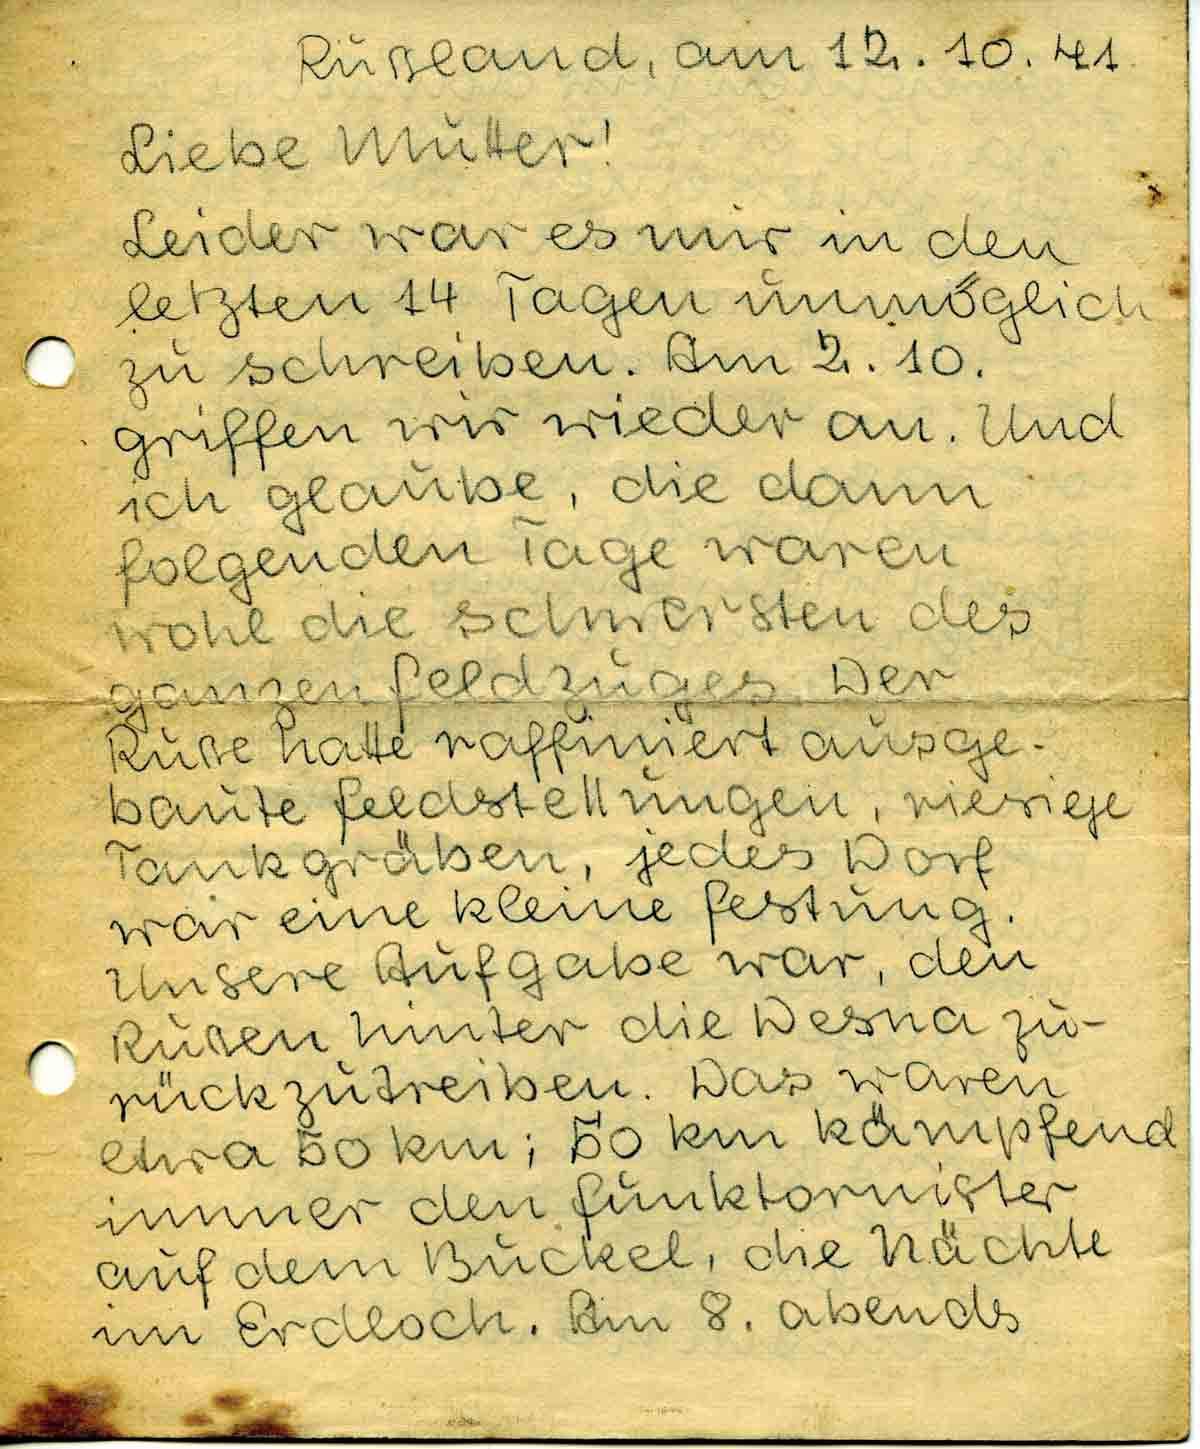 Rußland, am 12. 10. 41
Liebe Mutter!
Leider war es mir in den
letzten 14 Tagen unmöglich
zu schreiben. Am 2. 10.
griffen wir wieder an. Und
ich glaube, die dann
folgenden Tage waren
wohl die schwersten des
ganzen Feldzuges. Der
Ruße hatte raffiniert ausge-
baute Feldstellungen, riesige
Tankgräben, jedes Dorf
war eine kleine Festung.
Unsere Aufgabe war, den
Rußen hinter die Desna zu-
rückzutreiben. Das waren
etwa 50 km; 50 km kämpfend
immer den Funktornister
auf dem Buckel, die Nächte
im Erdloch. Am 8. abends